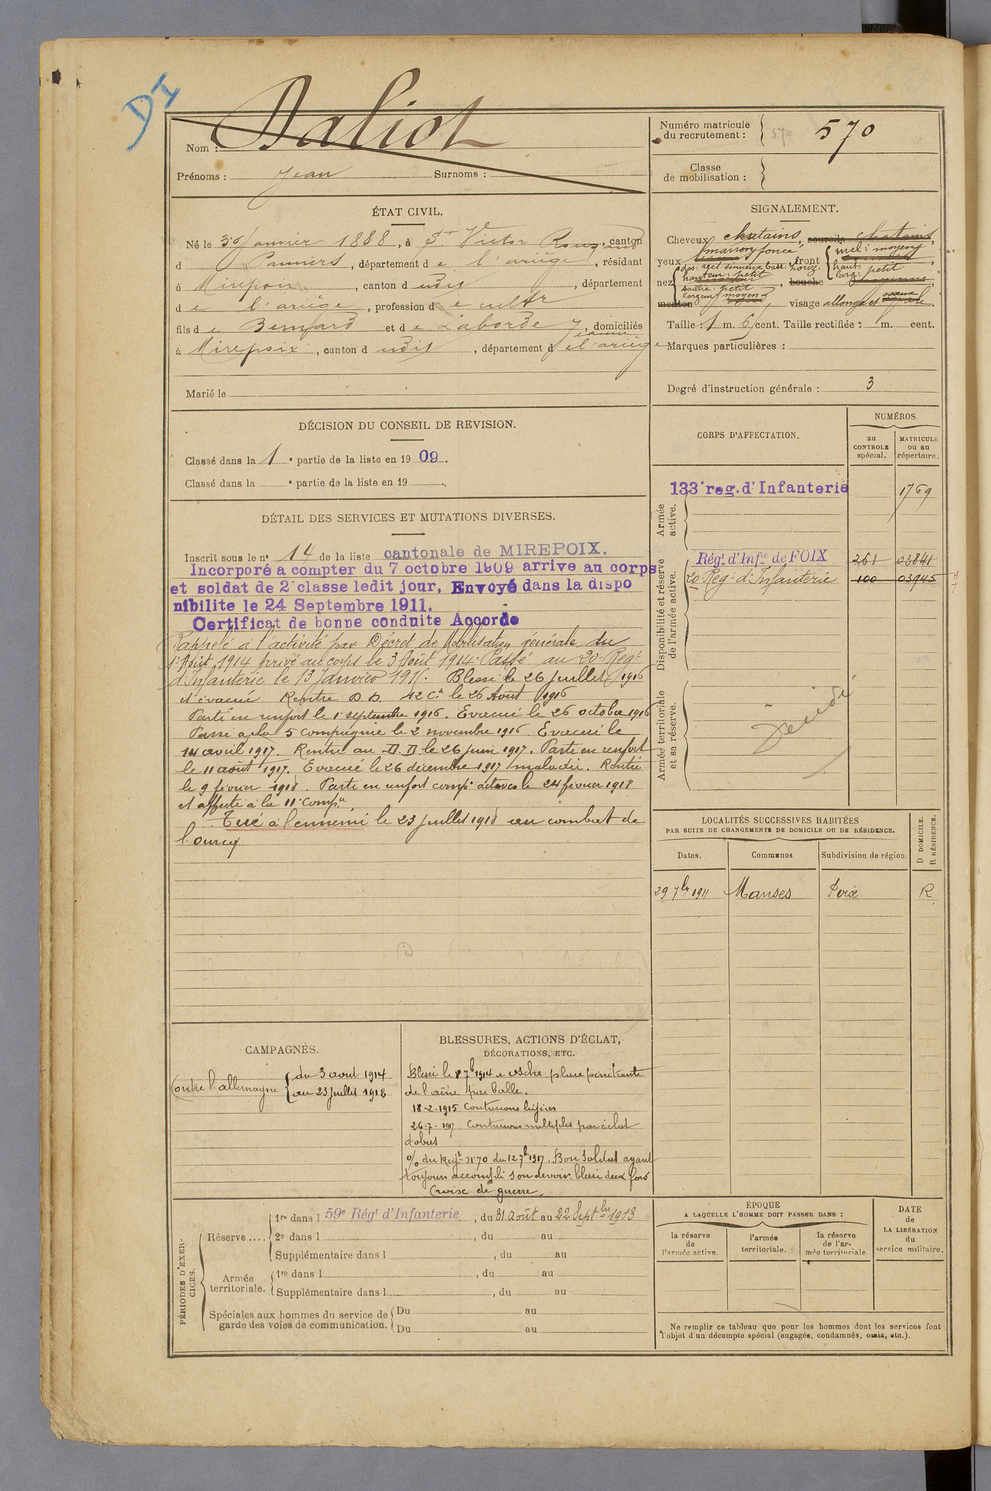 DI
Nom : Daliot
Prénoms : Jean Surnoms :
Numéro matricule du recrutement : 570 570
Classe de mobilisation :
ÉTAT CIVIL.
Né le 30 Janvier 1888, à St Victor Rouzaud, canton
d Pamiers, département de l'ariège, résidant
à Mirepoix, canton d udit, département
de l'ariège, profession de cultr
fils de Bernard et de Laborde Jeanne, domiciliés
à Mirepoix, canton d udit, département de l'ariège
Marié le
SIGNALEMENT.
Cheveux chatains, sourcils chatains,
yeux marron foncé, front incl: moyen
haut:
larg: petit
nez dos: rect. sinueux base: horiz. bouche
hauteur: petit
saillie: petit
largeur moyen
menton visage allongé et
Taille : 1 m. 6 cent. Taille rectifiée : 1 m. cent.
Marques particulières :
Degré d'instruction générale : 3
DÉCISION DU CONSEIL DE REVISION.
Classé dans la 1e partie de la liste en 1909.
Classé dans la e partie de la liste en 19 .
DÉTAIL DES SERVICES ET MUTATIONS DIVERSES.
Inscrit sous le n° 14 de la liste cantonale de MIREPOIX.
Incorporé a compter du 7 octobre 1909 arrive au corps
et soldat de 2e classe ledit jour, Envoyé dans la dispo
nibilite le 24 Septembre 1911.
Certificat de bonne conduite Accordé
Rappelé à l'activité par Décret de Mobilisation générale du
1er Août 1914 Arrivé au corps le 3 Août 1914. Passé au 20e Régt
d'Infanterie le 13 Janvier 191 . Blessé le 26 juillet 1916
et évacué Rentre au D.D. 12 Cie le 26 Août 1916
Parti en renfort le 1er septembre 1916. Evacué le 26 octobre 1916
Passé a la 5 compagnie le 2 novembre 1916 Evacué le
14 avril 1917. Rentré au D.D le 26 juin 1917. Parti en renfort
le 11 août 1917. Evacué le 26 décembre 1917 maladie. Rentré
le 9 février 1918. Parti en renfort comp. le 24 février 1918
et affecté à la 11e Compie.
Tué à l'ennemi le 23 juillet 1918 au combat de
l'ourcq
CORPS D'AFFECTATION.
NUMÉROS
au CONTROLE spécial.
MATRICULE ou au répertoire.
Armée active.
133e reg. d'Infanterie 1769
Disponibilité et réserve de l'armée active.
Régt d'Infie de FOIX 261 03841
20 Régt d'Infanterie 100 03945
Armée territoriale et sa réserve.
Décédé
LOCALITÉS SUCCESSIVES HABITÉES
PAR SUITE DE CHANGEMENTS DE DOMICILE OU DE RÉSIDENCE.
Dates. Communes Subdivision de région. D DOMICILE. R RÉSIDENCE.
29 7bre 1911 Manses Foix R
CAMPAGNES.
Contre l'allemagne du 3 août 1914
au 23 juillet 1918
BLESSURES, ACTIONS D'ÉCLAT,
DÉCORATIONS, ETC.
Blessé le 8 7bre 1914 a plaie pénétrante
de l'aine par balle.
18-2-1915 Contusions légères
26-7- Contusions multiples par éclat
d'obus
O/ du Régt n°70 du 12 7bre 1917. Bon soldat ayant
toujours accompli son devoir blessé deux fois
Croix de guerre.
PÉRIODES D'EXERCICES.
Réserve .... 1re dans l 59e Régt d'Infanterie, du 31 août au 22 Septbre 1913
2e dans l , du au
Supplémentaire dans l , du au
Armée territoriale. 1re dans l , du au
Supplémentaire dans l , du au
Spéciales aux hommes du service de garde des voies de communication. Du au
Du au
ÉPOQUE
A LAQUELLE L'HOMME DOIT PASSER DANS :
la réserve de l'armée active.
l'armée territoriale.
la réserve de l'armée territoriale.
DATE de LA LIBÉRATION du service militaire.
Ne remplir ce tableau que pour les hommes dont les services font
l'objet d'un décompte spécial (engagés, condamnés, omis, etc.).